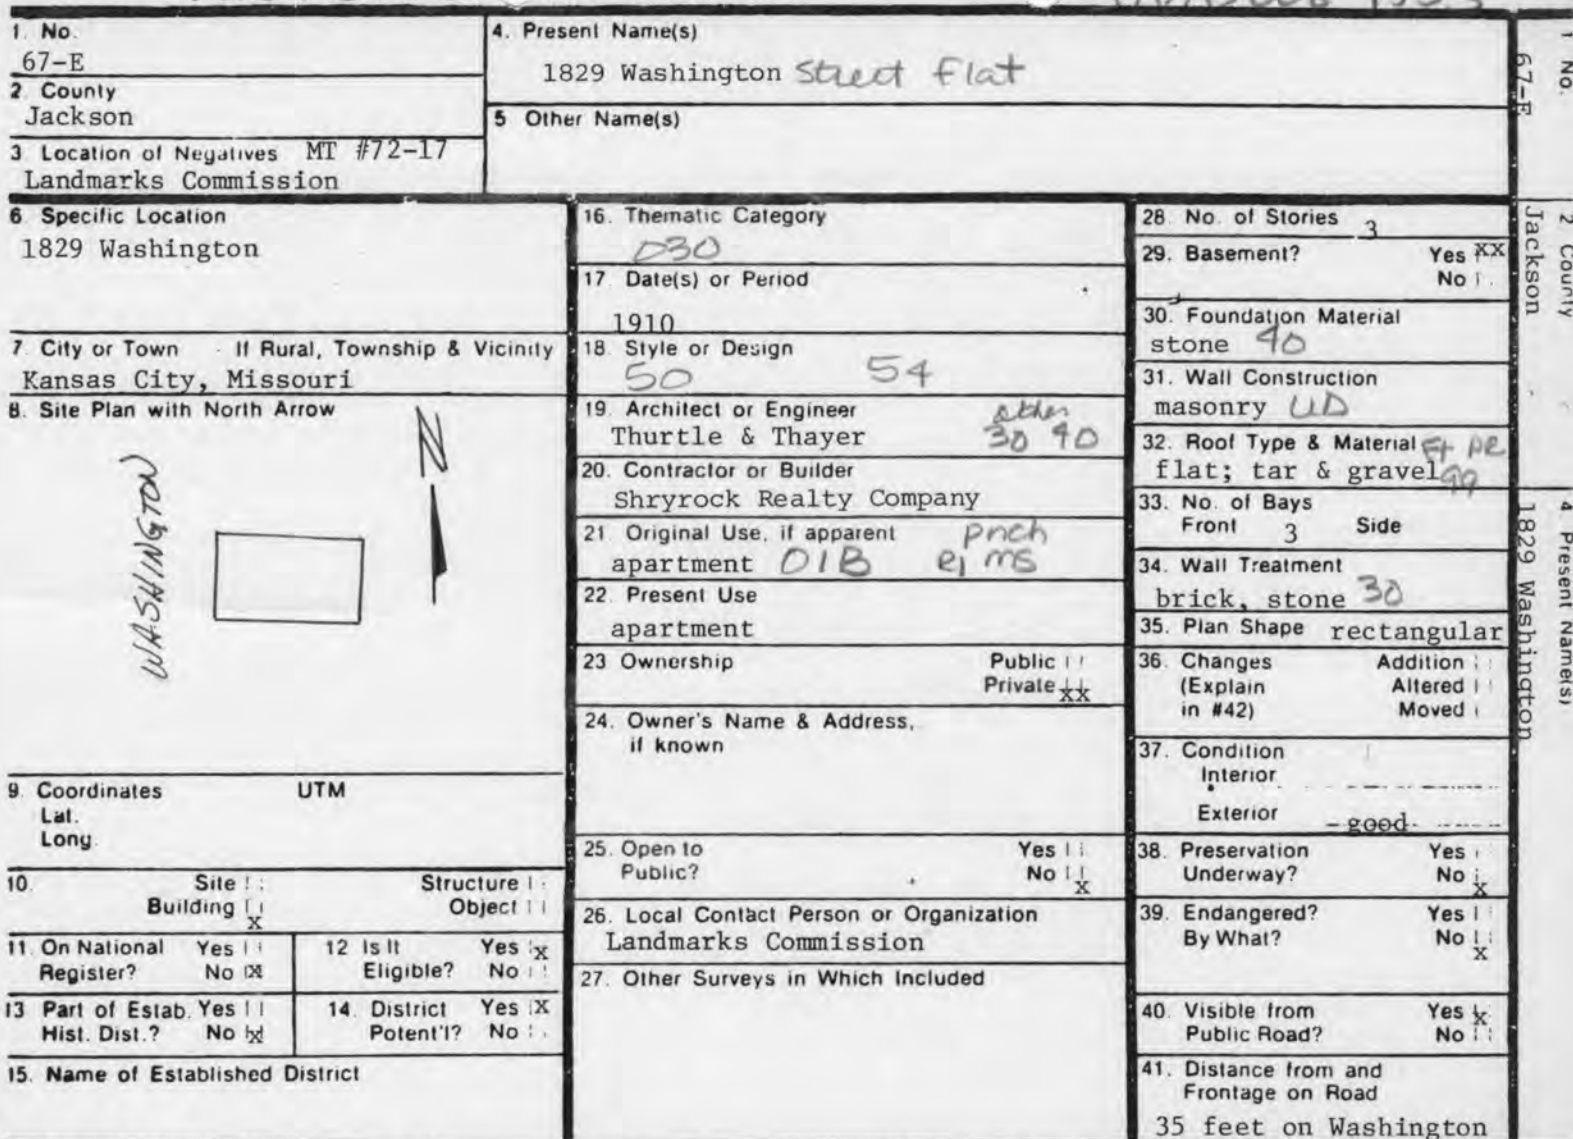 1. No.
67-E
2. County
Jackson
3. Location of Negatives MT #72-17
Landmarks Commission
4. Present Name(s)
1829 Washington Street Flat
5 Other Name(s)
6 Specific Location
1829 Washington
7 City or Town If Rural, Township & Vicinity
Kansas City, Missouri
8. Site Plan with North Arrow
N
WASHINGTON
9. Coordinates UTM
Lat.
Long.
10. Site Structure
Building x Object
11. On National Yes
Register? No x
12 Is It Yes x
Eligible? No
13 Part of Estab. Yes
Hist. Dist.? No x
14. District Yes x
Potent'l? No
15. Name of Established District
16. Thematic Category
030
17 Date(s) or Period
1910
18. Style or Design
50 54
19. Architect or Engineer other
Thurtle & Thayer 30 40
20. Contractor or Builder
Shryrock Realty Company
21 Original Use, if apparent pnch
apartment 01B ms
22. Present Use
apartment
23 Ownership Public
Private xx
24. Owner's Name & Address,
if known
25. Open to Yes
Public? No x
26. Local Contact Person or Organization
Landmarks Commission
27. Other Surveys in Which Included
28. No. of Stories 3
29. Basement? Yes xx
No
30. Foundation Material
stone 40
31. Wall Construction
masonry UD
32. Roof Type & Material
flat; tar & gravel 99
33. No. of Bays
Front 3 Side
34. Wall Treatment
brick, stone 30
35. Plan Shape rectangular
36. Changes Addition
(Explain Altered
in #42) Moved
37. Condition
Interior
Exterior good
38. Preservation Yes
Underway? No x
39. Endangered? Yes
By What? No x
40. Visible from Yes x
Public Road? No
41. Distance from and
Frontage on Road
35 feet on Washington
1 No.
67-E
2 County
Jackson
4. Present Name(s)
1829 Washington